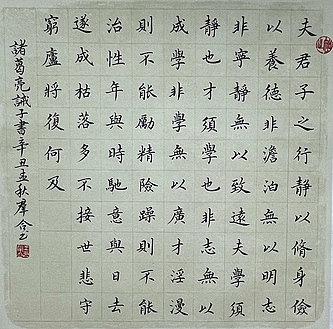 夫君子之行靜以脩身儉
以養德非澹泊無以明志
非寧靜無以致遠夫學須
靜也才須學也非志無以
成學非學無以廣才淫漫
則不能勵精險躁則不能
治性年與時馳意與日去
遂成枯落多不接世悲守
窮廬將復何及
諸葛亮誡子書辛丑孟秋